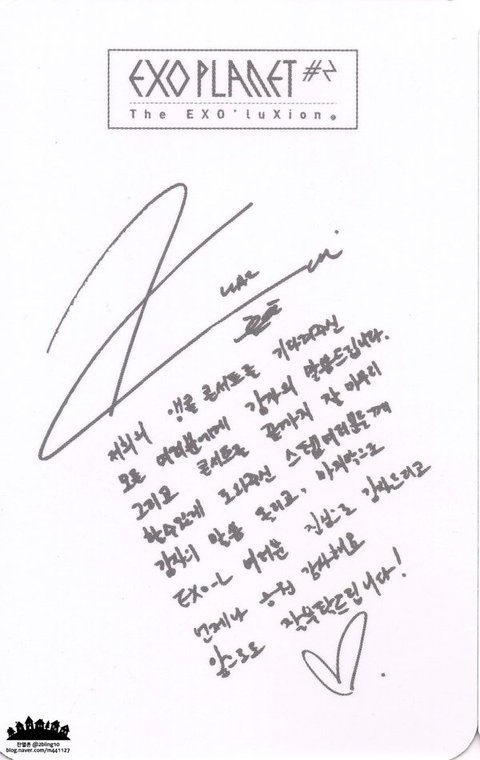 EXO PLANET #2
The EXO'luXion.
저희의 앵콜 콘서트를 기다려주신
모든 여러분에게 감사의 말씀드립니다.
그리고 콘서트를 끝까지 잘 마무리
할수있게 도와주신 스탭여러분들께
감사의 말씀 올리고, 마지막으로
EXO-L 여러분 진심으로 감사드리고
언제나 응원 감사해요
앞으로도 잘부탁드립니다!
찬열촌 @2bling10
blog.naver.com/m441127